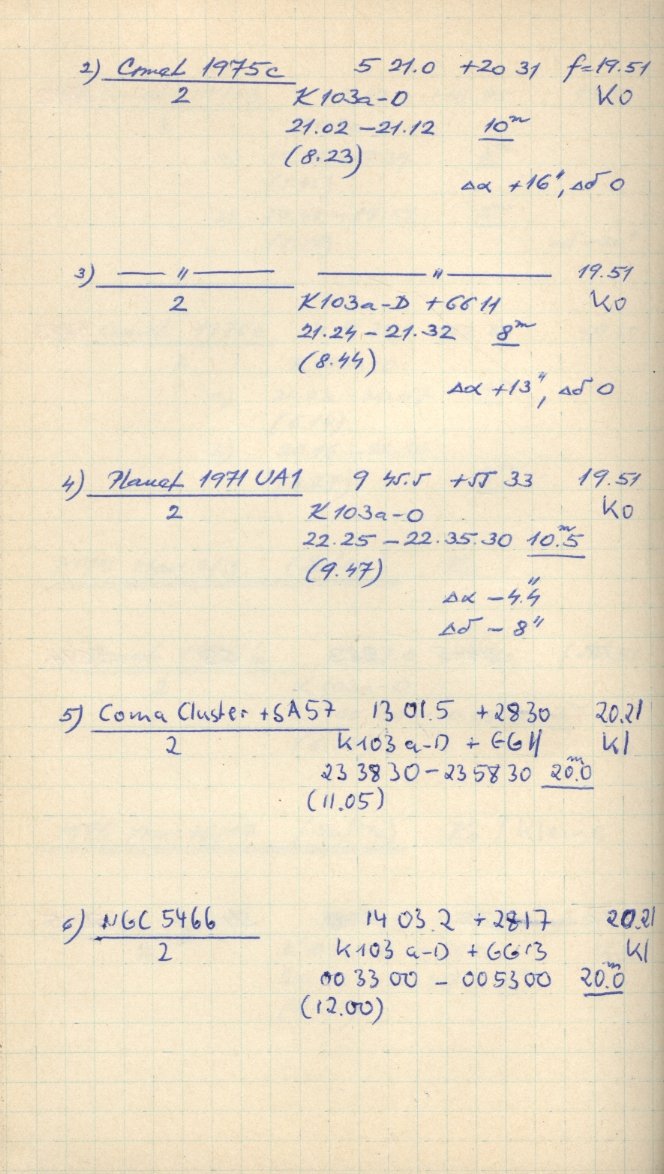 2) Comet 1975c 5 21.0 +20 31 f=19.51
2 K103a-D KO
21.02 – 21.12 10m
(8.23)
Δα +16", Δδ 0
3) — " — — " — 19.51
2 K103a-D + GG11 KO
21.24 – 21.32 8m
(8.44)
Δα +13", Δδ 0
4) Planet 1971 UA1 9 45.5 +55 33 19.51
2 K103a-O KO
22.25 – 22.35.30 10m.5
(9.47)
Δα – 4.4"
Δδ – 8"
5) Coma Cluster + SA57 13 01.5 +28 30 20.21
2 K103a-D + GG11 Kl
23 38 30 – 23 58 30 20m.0
(11.05)
6) NGC 5466 14 03.2 +28 17 20.21
2 K103a-D + GG13 Kl
00 33 00 – 00 53 00 20m.0
(12.00)